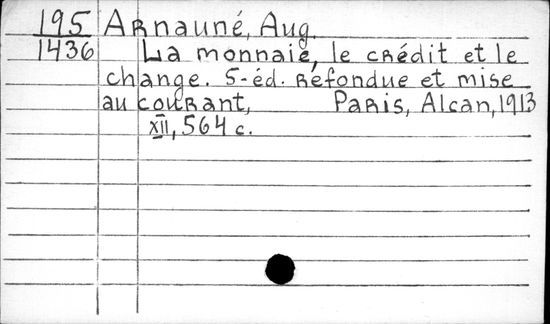 195 Arnauné, Aug.
1436 La monnaie, le crédit et le
change. 5-éd. Refondue et mise
au courant, Paris, Alcan, 1913
XII, 564 c.